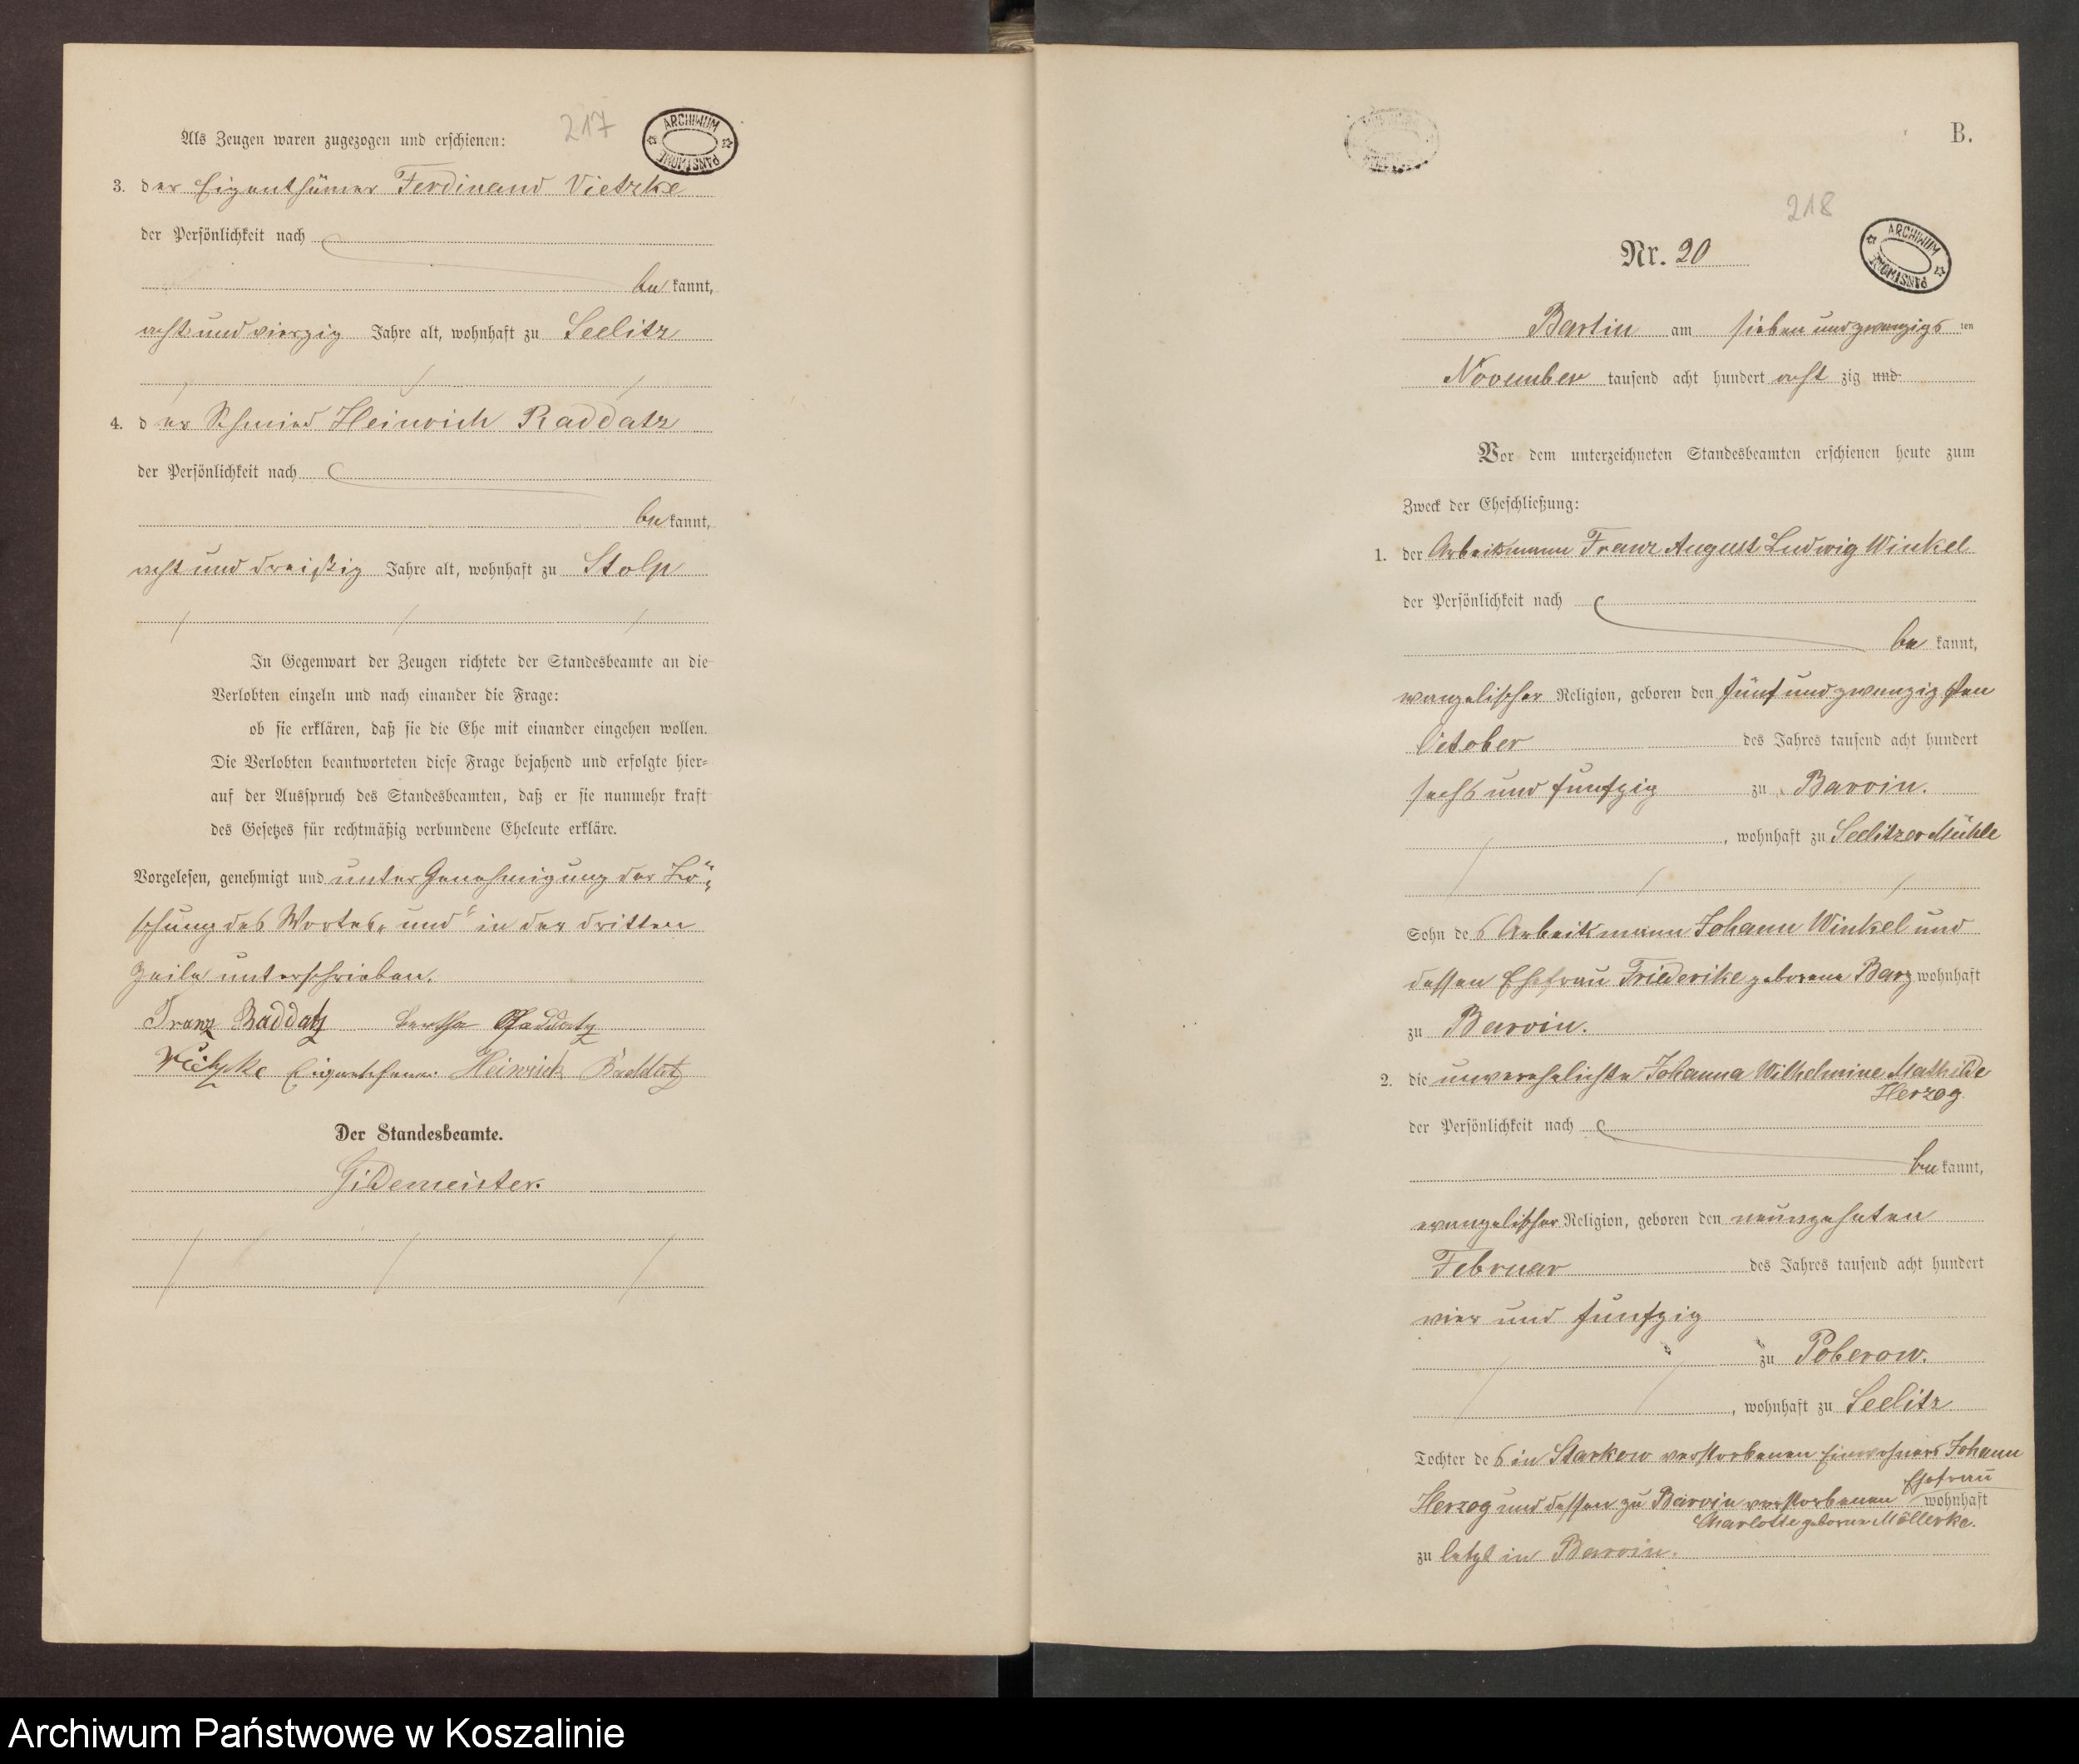 217
ARCHIWUM PAŃSTWOWE
Als Zeugen waren zugezogen und erschienen:
3. der Eigenthümer Ferdinand Vietzke
der Persönlichkeit nach
be kannt,
acht und vierzig Jahre alt, wohnhaft zu Seelitz
4. der Schmied Heinrich Raddatz
der Persönlichkeit nach
be kannt,
acht und dreißig Jahre alt, wohnhaft zu Stolp
In Gegenwart der Zeugen richtete der Standesbeamte an die
Verlobten einzeln und nach einander die Frage:
ob sie erklären, daß sie die Ehe mit einander eingehen wollen.
Die Verlobten beantworteten diese Frage bejahend und erfolgte hier-
auf der Ausspruch des Standesbeamten, daß er sie nunmehr kraft
des Gesetzes für rechtmäßig verbundene Eheleute erkläre.
Vorgelesen, genehmigt und unter Genehmigung der Lö-
schung des Wortes „und“ in der dritten
Zeile unterschrieben.
Franz Raddatz Bertha Raddatz
Vietzke Eigenthümer Heinrich Raddatz
Der Standesbeamte.
Gildemeister.
B.
218
ARCHIWUM PAŃSTWOWE
Nr. 20
Bartin am sieben und zwanzigs ten
November tausend acht hundert acht zig und
Vor dem unterzeichneten Standesbeamten erschienen heute zum
Zweck der Eheschließung:
1. der Arbeitsmann Franz August Ludwig Winkel
der Persönlichkeit nach
be kannt,
evangelischer Religion, geboren den fünf und zwanzigsten
October des Jahres tausend acht hundert
sechs und funfzig zu Barvin.
, wohnhaft zu Seelitzer Mühle
Sohn des Arbeitsmann Johann Winkel und
dessen Ehefrau Friederike geborene Barz wohnhaft
zu Barvin.
2. die unverehelichte Johanna Wilhelmine Mathilde
Herzog
der Persönlichkeit nach
be kannt,
evangelischer Religion, geboren den neunzehnten
Februar des Jahres tausend acht hundert
vier und funfzig
zu Poberow.
, wohnhaft zu Seelitz
Tochter des in Starkow verstorbenen Einwohners Johann
Herzog und dessen zu Barvin verstorbenen Ehefrau wohnhaft
Charlotte geborene Möllerke.
zu letzt in Barvin.
Archiwum Państwowe w Koszalinie